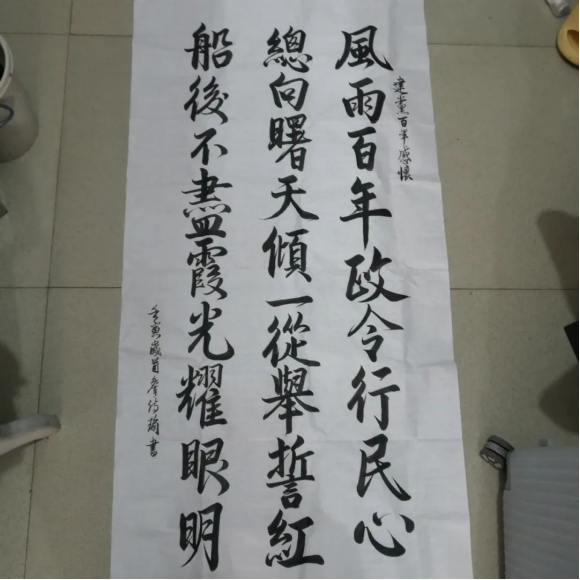 建黨百年感懷
風雨百年政令行民心
總向曙天傾一從舉誓紅
船後不盡霞光耀眼明
歲首
書